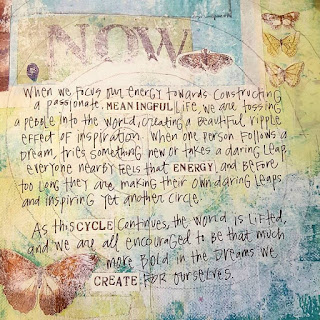 NOW
When we focus our energy towards constructing
a passionate, MEANINGFUL life, we are tossing
a pebble into the world, creating a beautiful ripple
effect of inspiration. When one person follows a
dream, tries something new or takes a daring leap,
everyone nearby feels that ENERGY, and before
too long they are making their own daring leaps
and inspiring yet another circle.
As this CYCLE continues, the world is lifted,
and we are all encouraged to be that much
more bold in the dreams we
CREATE FOR ourselves.